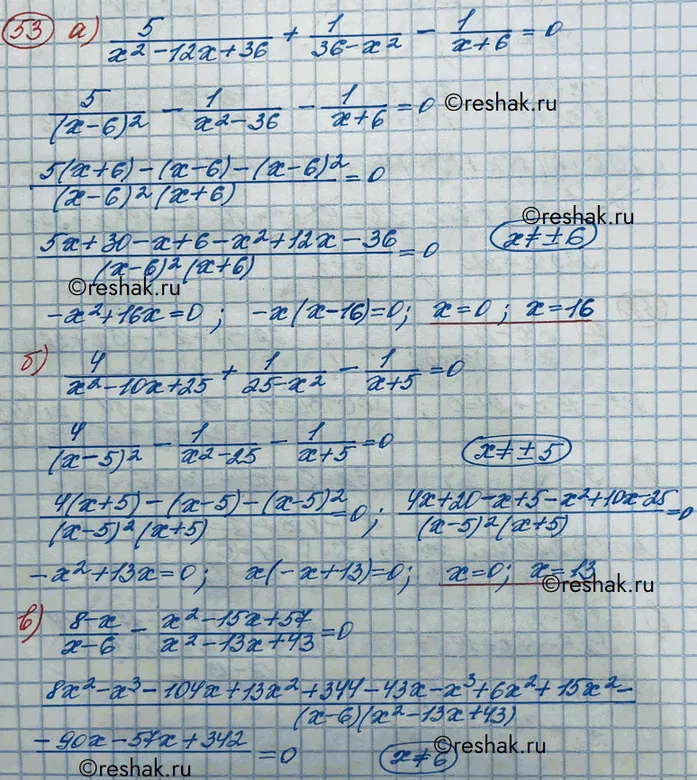 53 а) 5/(x²-12x+36) + 1/(36-x²) - 1/(x+6) = 0
5/(x-6)² - 1/(x²-36) - 1/(x+6) = 0 ©reshak.ru
(5(x+6)-(x-6)-(x-6)²)/((x-6)²(x+6)) = 0
©reshak.ru
(5x+30-x+6-x²+12x-36)/((x-6)²(x+6)) = 0 x≠±6
©reshak.ru
-x²+16x=0; -x(x-16)=0; x=0; x=16
б) 4/(x²-10x+25) + 1/(25-x²) - 1/(x+5) = 0
4/(x-5)² - 1/(x²-25) - 1/(x+5) = 0 x≠±5
(4(x+5)-(x-5)-(x-5)²)/((x-5)²(x+5)) = 0; (4x+20-x+5-x²+10x-25)/((x-5)²(x+5)) = 0
-x²+13x=0; x(-x+13)=0; x=0; x=13
©reshak.ru
в) (8-x)/(x-6) - (x²-15x+57)/(x²-13x+43) = 0
8x²-x³-104x+13x²+344-43x-x³+6x²+15x²-
(x-6)(x²-13x+43)
-90x-57x+342 = 0 x≠6
©reshak.ru ©reshak.ru